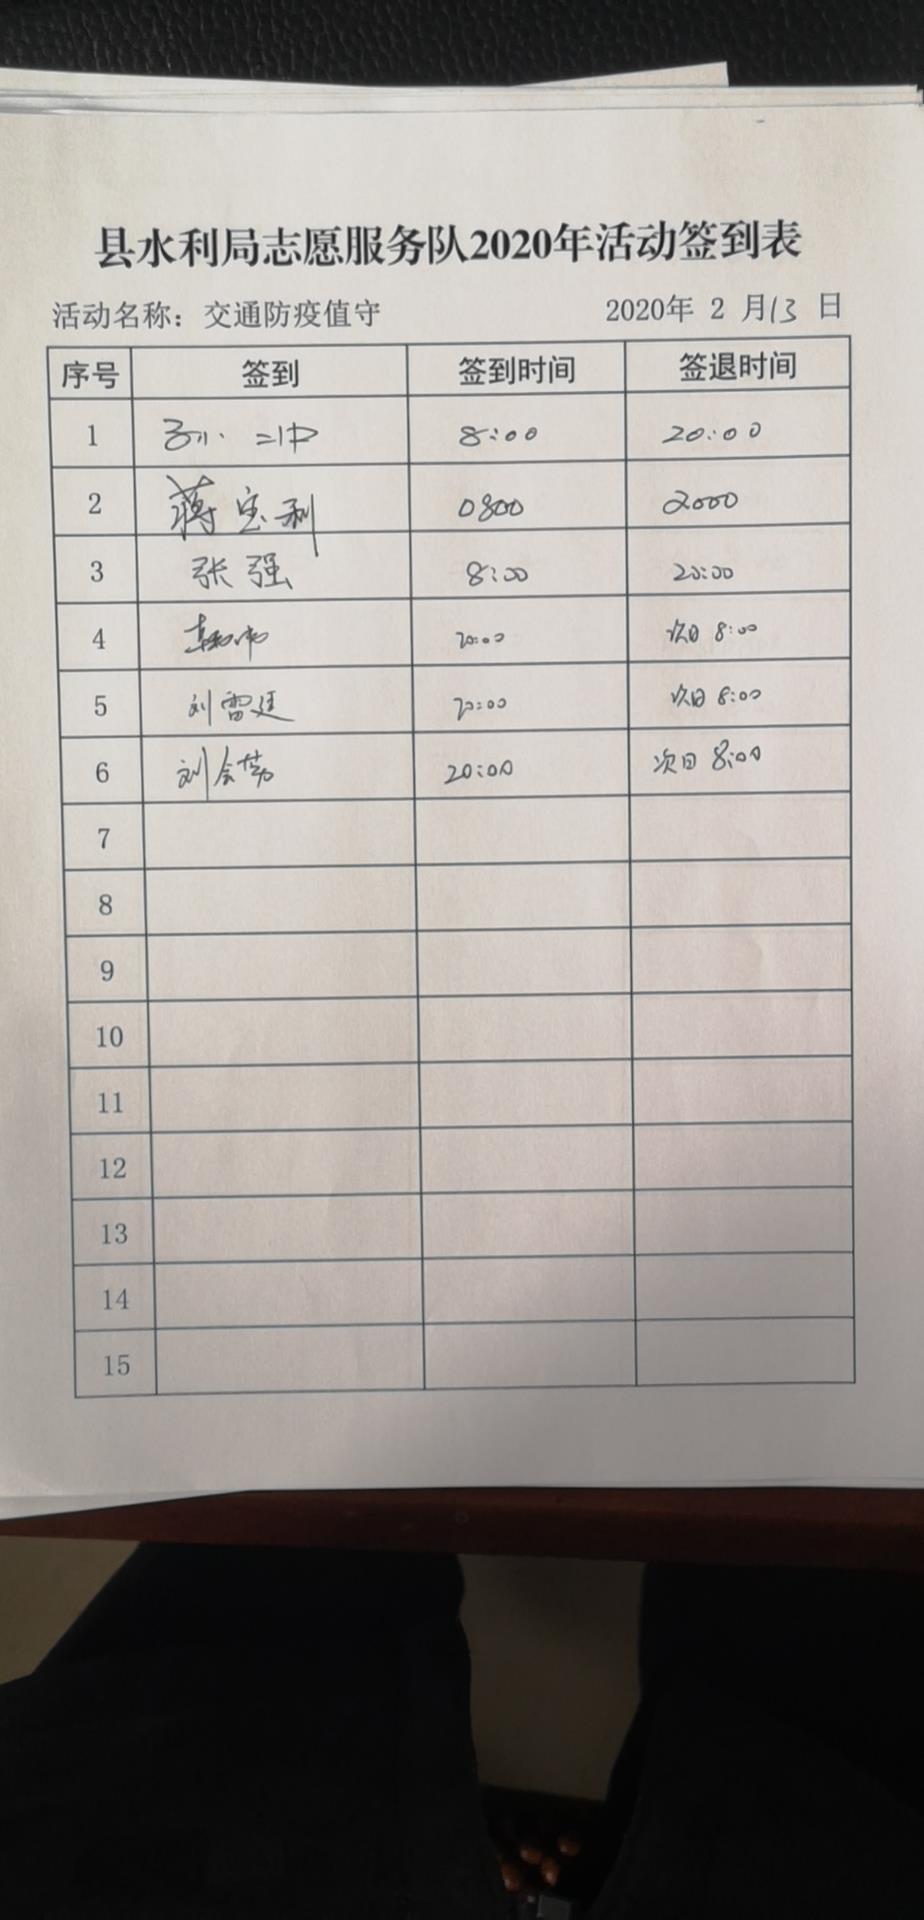 县水利局志愿服务队2020年活动签到表
活动名称：交通防疫值守 2020年 2 月13 日
序号 签到 签到时间 签退时间
1 8:00 20:00
2 蒋宝利 0800 2000
3 张强 8:00 20:00
4 20:00 次日 8:00
5 刘雷廷 20:00 次日 8:00
6 刘会芳 20:00 次日 8:00
7
8
9
10
11
12
13
14
15